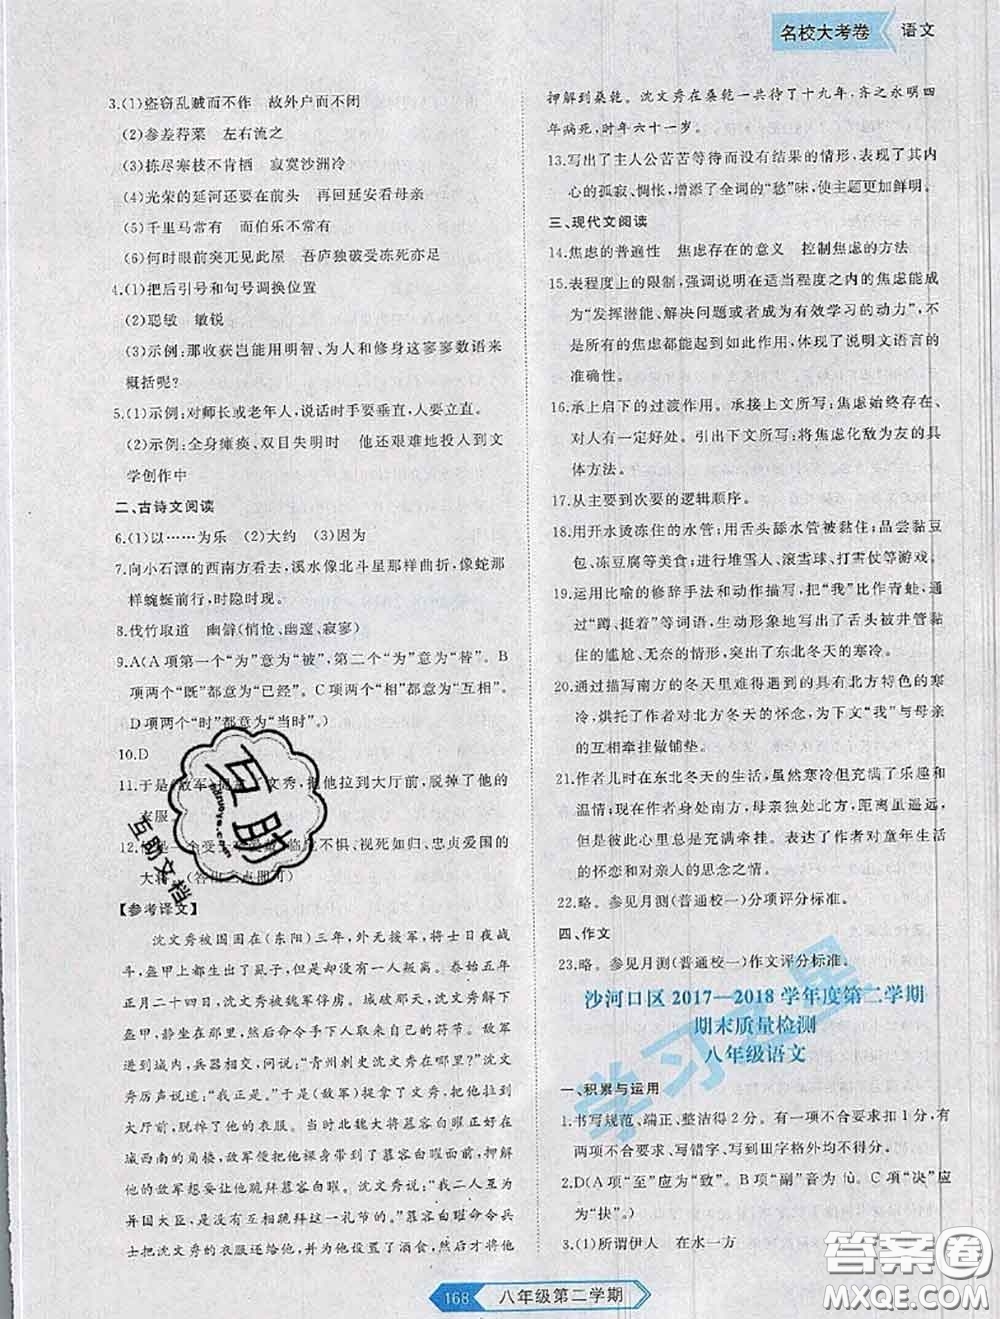 名校大考卷 语文
3.(1)盗窃乱贼而不作 故外户而不闭
(2)参差荇菜 左右流之
(3)拣尽寒枝不肯栖 寂寞沙洲冷
(4)光荣的延河还要在前头 再回延安看母亲
(5)千里马常有 而伯乐不常有
(6)何时眼前突兀见此屋 吾庐独破受冻死亦足
4.(1)把后引号和句号调换位置
(2)聪敏 敏锐
(3)示例:那收获岂能用明智、为人和修身这寥寥数语来
概括呢?
5.(1)示例:对师长或老年人,说话时手要垂直,人要立直。
(2)示例:全身瘫痪、双目失明时 他还艰难地投入到文
学创作中
二、古诗文阅读
6.(1)以……为乐 (2)大约 (3)因为
7.向小石潭的西南方看去,溪水像北斗星那样曲折,像蛇那
样蜿蜒前行,时隐时现。
8.伐竹取道 幽僻(悄怆、幽邃、寂寥)
9.A(A项第一个“为”意为“被”,第二个“为”意为“替”。B
项两个“既”都意为“已经”。C项两个“相”都意为“互相”。
D项两个“时”都意为“当时”。)
10.D
11.于是(敌军)捉 文秀,把他拉到大厅前,脱掉了他的
衣服
12. 一个受 临危不惧、视死如归、忠贞爱国的
大将。(答 三点即可)
【参考译文】
沈文秀被围困在(东阳)三年,外无援军,将士日夜战
斗,盔甲中都生出了虱子,但没有人背叛他。泰始五年
正月二十四日夜里,沈文秀被敌军俘虏。城被攻破的时
候,静坐在那里。(敌军)命令沈文秀脱下盔甲,拿着符
节,兵器交错进入,敌兵问说:“青州刺史沈文秀在哪里?”沈文
秀厉声说道:“就是我。”(敌军)于是捉住了文秀,把他拉到
大厅前,脱掉了他的衣服。当时北魏大将慕容白曜在
城西南的角楼,敌军绑着他裸身带到慕容白曜面前,他
的敌军想要让他跪拜慕容白曜。沈文秀说:“我二人互为
异国大臣,是没有互相跪拜这一礼节的。”慕容白曜命令兵
士把沈文秀的衣服还给他,给他设置了酒食,然后才将他
押解到桑乾。沈文秀在桑乾一共待了十九年,齐之永明四
年病死,时年六十一岁。
13.写出了主人公苦苦等待而没有结果的情形,表现了其内
心的孤寂、惆怅,增添了全词的“愁”味,使主题更加鲜明。
三、现代文阅读
14.焦虑的普遍性 焦虑存在的意义 控制焦虑的方法
15.表程度上的限制,强调说明在适当程度之内的焦虑能成
为“发挥潜能、解决问题或者成为有效学习的动力”,不
是所有的焦虑都能起到如此作用,体现了说明文语言的
准确性。
16.承上启下的过渡作用。承接上文所写:焦虑始终存在,
对人有一定好处。引出下文所写:将焦虑化敌为友的具
体方法。
17.从主要到次要的逻辑顺序。
18.用开水烫冻住的水管;用舌头舔水管被黏住;品尝黏豆
包、冻豆腐等美食;进行堆雪人、滚雪球、打雪仗等游戏
19.运用比喻的修辞手法和动作描写,把“我”比作青蛙,通
过“蹲、挺着”等词语,生动形象地写出了舌头被井管黏
住的尴尬、无奈的情形,突出了东北冬天的寒冷。
20.通过描写南方的冬天里难得遇到的具有北方特色的寒
冷,烘托了作者对北方冬天的怀念,为下文“我”与母亲
的互相牵挂做铺垫。
21.作者儿时在东北冬天的生活,虽然寒冷却充满了乐趣和
温情;如今作者身处南方,母亲独处北方,距离虽遥远,
但是彼此心里总是充满牵挂。表达了作者对童年生活
的怀恋和对亲人的思念之情。
22.略。参见月测(普通校一)分项评分标准。
四、作文
23.略。参见月测(普通校一)作文评分标准。
沙河口区 2017—2018 学年度第二学期
期末质量检测
八年级语文
一、积累与运用
1.书写规范、端正、整洁得2分。有一项不合要求扣1分,有
两项不合要求不得分。写到田字格外均不得分。
2.D(A项“至”应为“致”。B项“副”音为fù。C项“决”应
为“抉”。)
3.(1)所谓伊人 在水一方
168 八年级第二学期
互助
互助文档
学习之星
答案圈
MXQE.COM